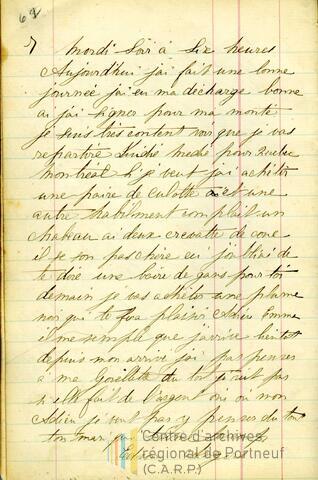 69
7 mardi Soir à Six heures
Aujourd'hui jai fait une bonne
journée jai eu ma décharge bonne
ai jai Signer pour ma monté
je suis très content voir que je vas
repartire midi pour
montreal Si je veut jai achéter
une paire de culotte et une
autre habilment complait un
chapau ai deux cravatte de cone
il se son pas chère ici
te dire une paire de gans pour toi
demain je vas acheter une plume
moi qui te fra plaisir Adieu Emma
il me semple que jarrive bientot
depuis mon arrivé jai pas penser
à ma Goeillette du tout
si elle fait de l'argent oui ou non
Adieu je veut pas y penser du tout
ton mari
Centre d'archives
régional de Portneuf
(C.A.R.P.)